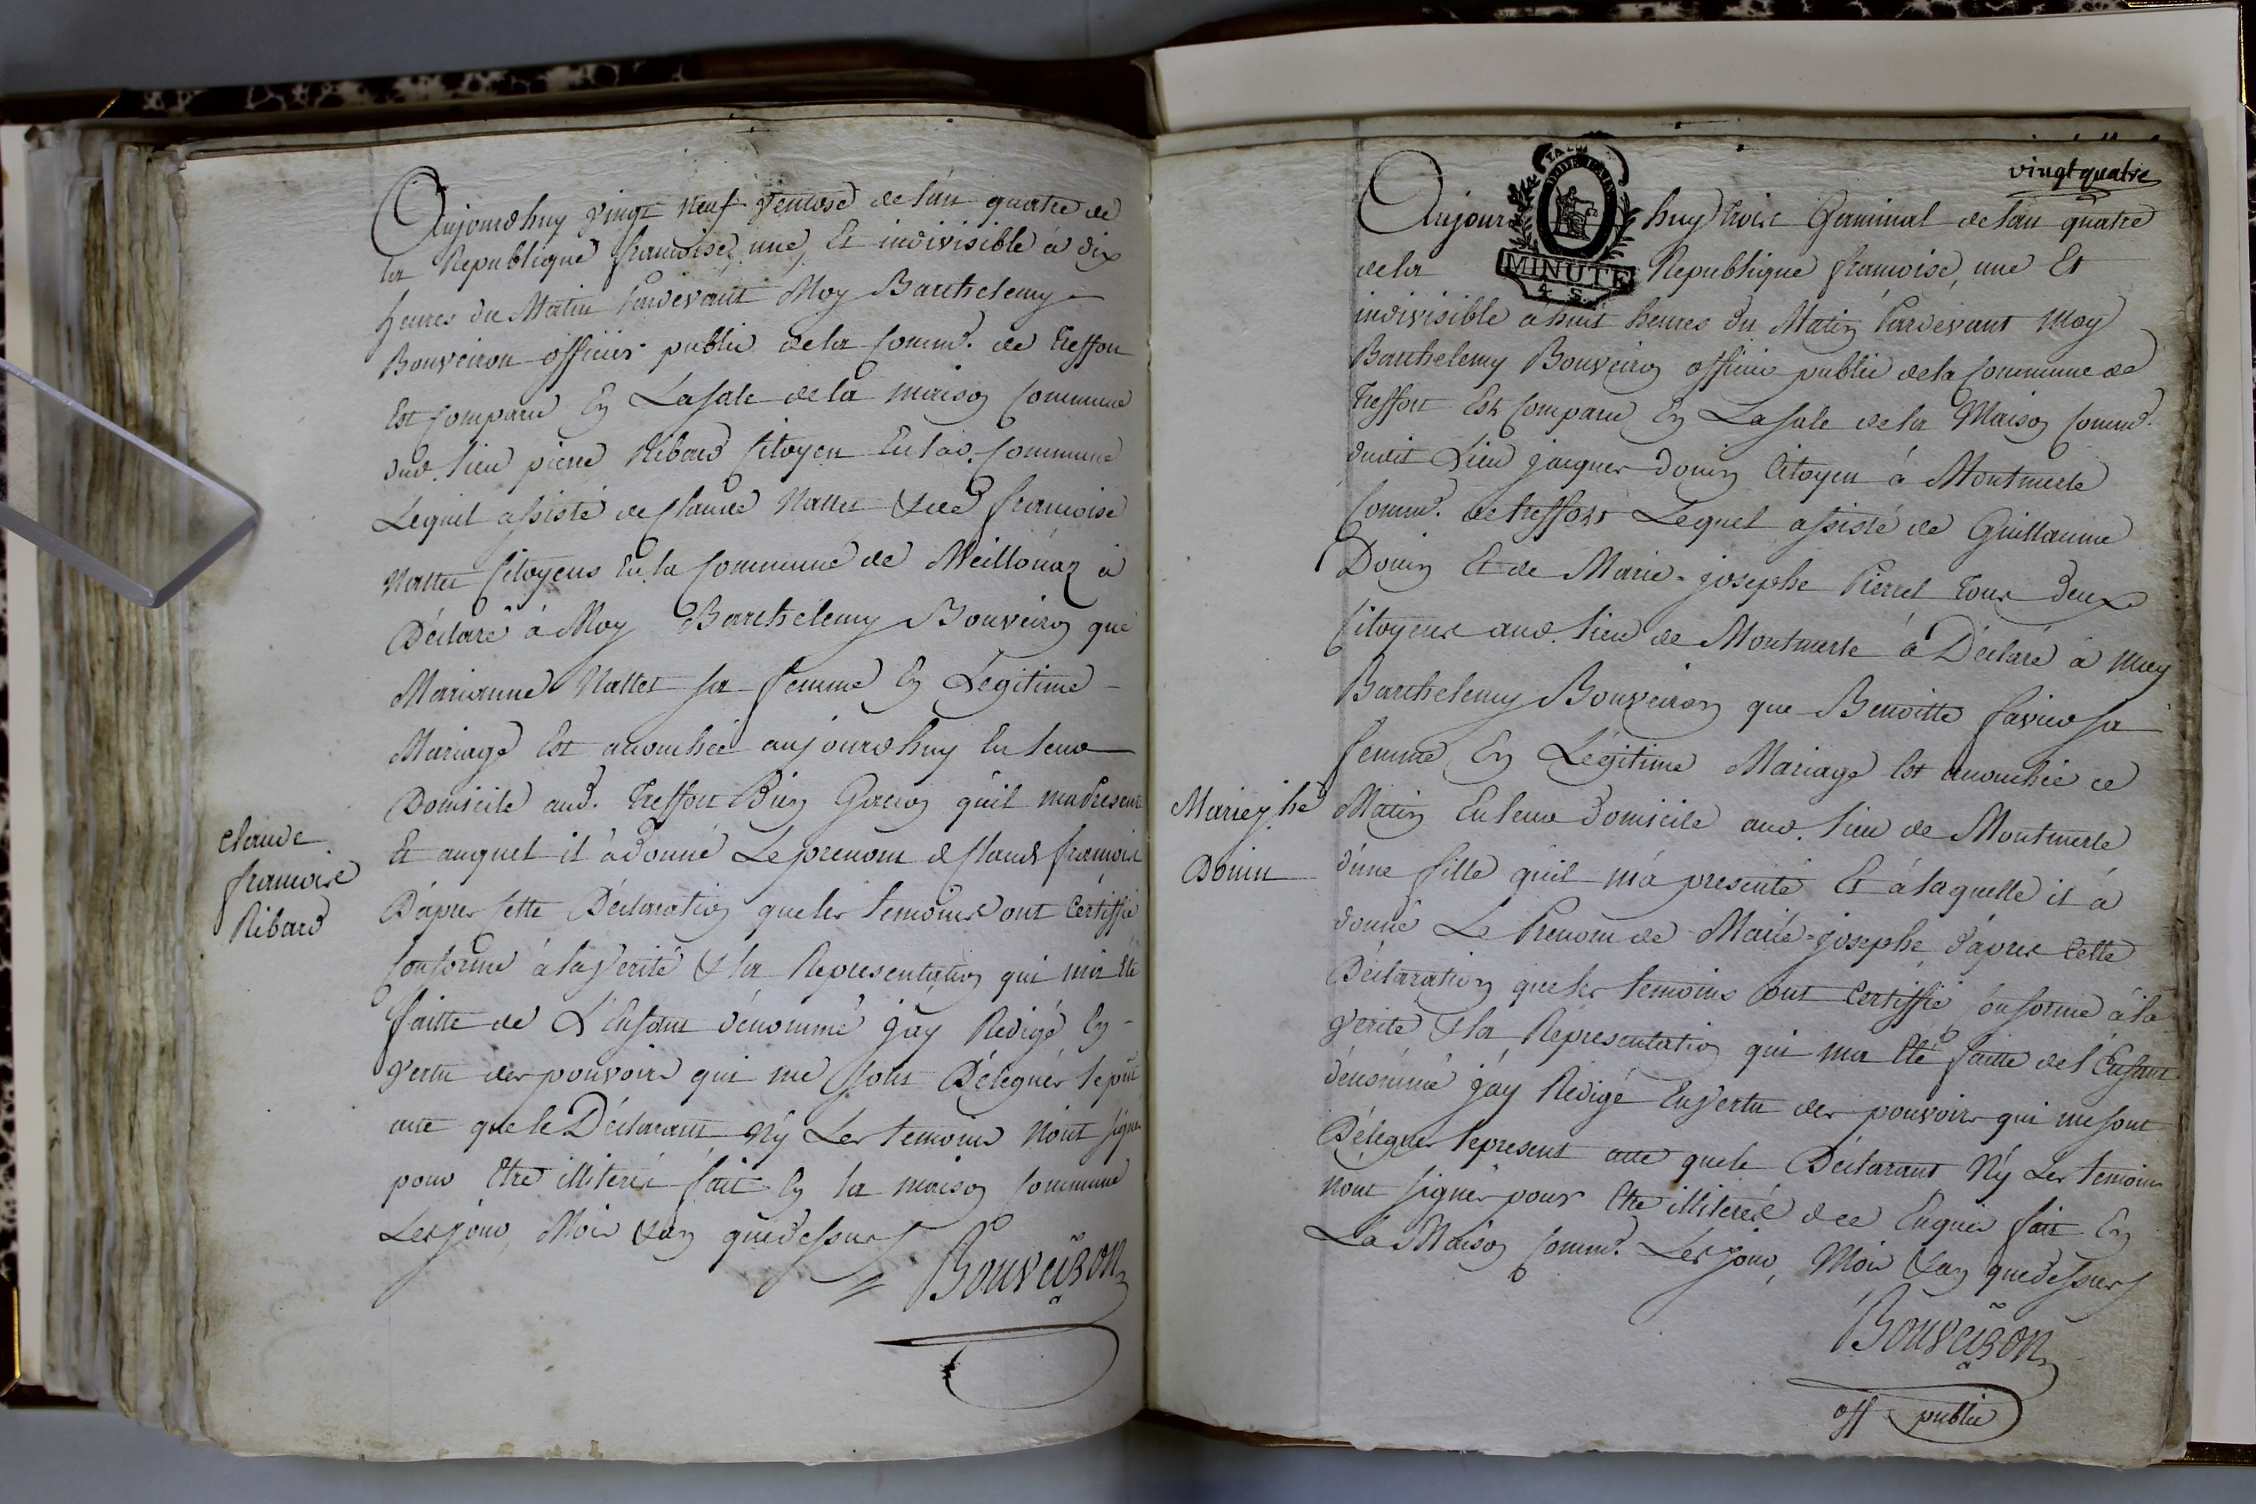 Aujourdhuy vingt neuf ventose de l'an quatre de
la Republique francoise, une, Et indivisible à dix
heures du Matin Pardevant Moy Barthelemy
Bouveiron officier public de la Commᵉ. de Treffort
Est Comparu En La sale de la maison Commune
dud. lieu pierre Ribard Citoyen En lad. Commune
Lequel assisté de Claude Nattet & de francoise
Nattet Citoyens En la Commune de Meillonaz à
Déclaré à Moy Barthelemy Bouveiron que
Marianne Nattet sa femme En Légitime
Mariage Est accouchée aujourdhuy En leur
Domicile aud. Treffort D'un Garcon quil ma Presenté
Et auquel il à donné Le prenom de Claude francois
D'apres Cette Déclaration que les temoins ont Certiffié
Conforme à la Verité & la Representation qui m'a Eté
faitte de L'Enfant dénommé j'ay Redigé En
Vertu des pouvoirs qui me sont Délégués le pnt
acte que le Déclarant Ny Les temoins N'ont signé
pour Etre illiterés fait En la maison Commune
Les jour, Mois & an que dessus
Bouveiron
Claude
francoise
Ribard
vingt quatre
DOUBLE
MINUTE
4 S.
Aujour huy trois Germinal de l'an quatre
de la Republique francoise, une Et
indivisible à huit heures du Matin Pardevant Moy
Barthelemy Bouveiron officier public de la Commune de
Treffort Est Comparu En La sale de la Maison Commᵉ.
dudit Lieu jacques Donin Citoyen à Montmerle
Commᵉ. de treffort Lequel assisté de Guillaume
Donin Et de Marie-josephe Pierrel tous deux
Citoyens aud. lieu de Montmerle à Déclaré à Moy
Barthelemy Bouveiron que Benoitte favier sa
femme En Légitime Mariage Est accouchée ce
Matin En leur Domicile aud. lieu de Montmerle
d'une fille quil m'à presenté Et à laquelle il à
donné Le Prenom de Marie-josephe, d'apres Cette
Déclaration que les temoins ont Certiffié Conforme à la
Verité & la Représentation qui ma Eté faitte de l'Enfant
dénommé j'ay Redigé En Vertu des pouvoirs qui me sont
Délégués le present acte que le Déclarant Ny Les temoins
N'ont signés pour Etre illiterés de ce Enquis fait En
La Maison Commᵉ. Les jour, Mois & an que dessus
Bouveiron
off public
Marie jhe
Donin